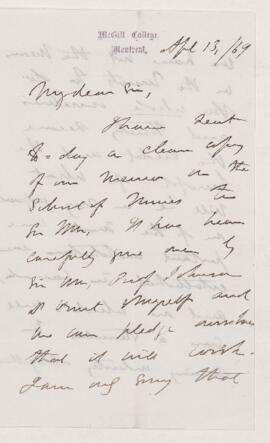 McGill College.
Montreal, Apl 13, /69
My dear Sir,
I have sent
to-day a clean copy
of our Memoir on the
School of Mines to
Sir Wm. It has been
carefully gone over by
Sir Wm, Prof Johnson
Myself and
we can pledge ourselves
that it will work.
I am only sorry that